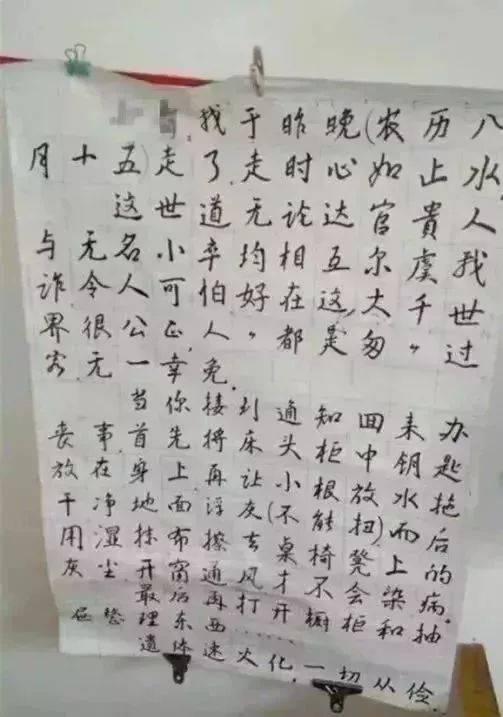 找于昨晚(农历八
月十五)走了走时心如止水.
这世道无论达官贵人
与无名小卒均相互尔虞我
诈令人可怕好在这大千世
界很公正,人"都是匆"过
客无一幸免.
当你接到通知回来办
丧事首先将床头柜中钥匙
放在身上再让小根放水拖
干净地面浮灰(不能扭)而后
用湿抹布擦去桌椅凳上的
灰尘开窗通风才不会染病.
最后再打开橱柜和抽
屉整理东西……
遗体速火化,一切从俭.